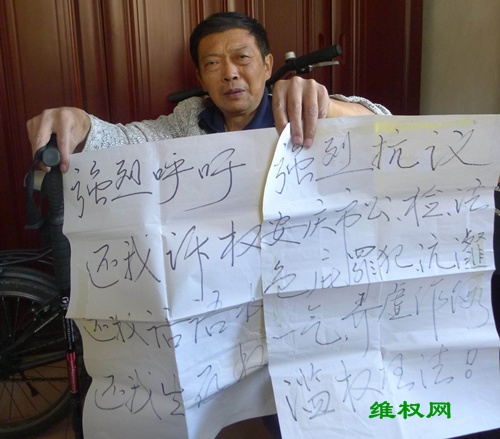 强烈呼吁
还我诉权
还我话语
还我生
强烈抗议
安庆市公、检、法
包庇罪犯、沆瀣
一气、弄虚作
滥权枉法！
维权网